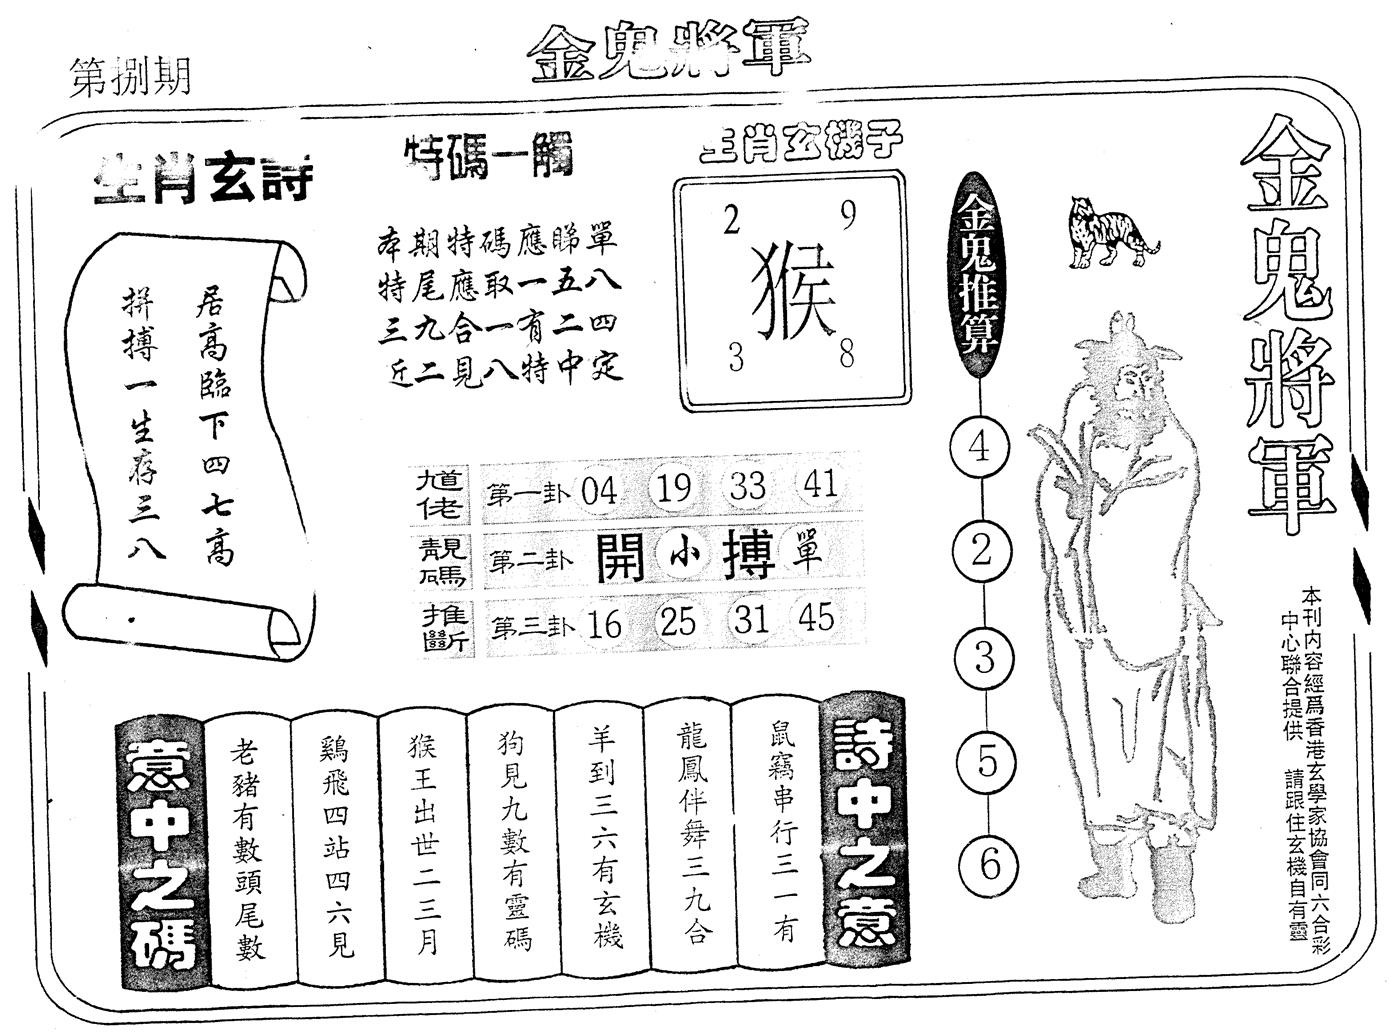 金鬼將軍
第捌期
生肖玄詩
居高臨下四七高
拼搏一生存三八
特碼一觸
本期特碼應睇單
特尾應取一五八
三九合一有二四
近二見八特中定
生肖玄機子
2 9
猴
3 8
馗佬靚碼推斷
第一卦 04 19 33 41
第二卦 開 小 搏 單
第三卦 16 25 31 45
詩中之意
鼠竊串行三一有
龍鳳伴舞三九合
羊到三六有玄機
狗見九數有靈碼
猴王出世二三月
鷄飛四站四六見
老豬有數頭尾數
意中之碼
金鬼推算
4
2
3
5
6
金鬼將軍
本刊内容經爲香港玄學家協會同六合彩
中心聯合提供 請跟住玄機自有靈